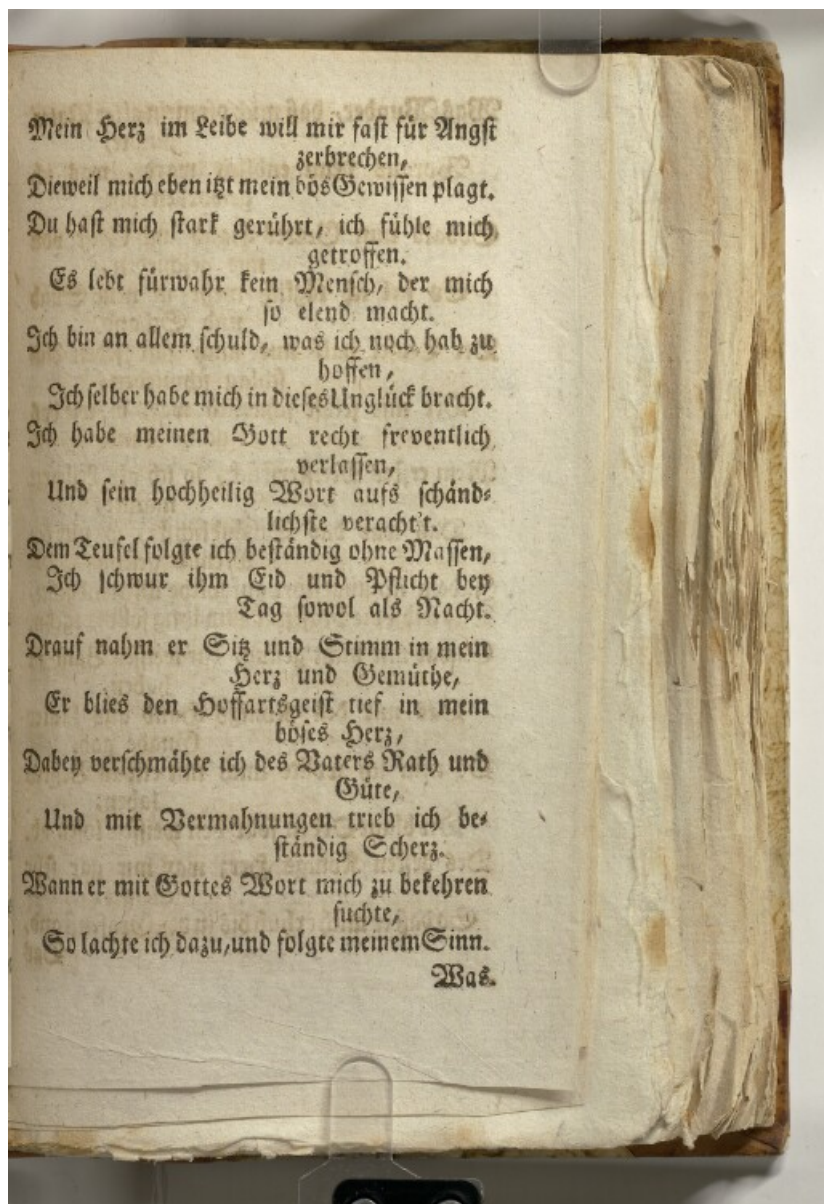 Mein Herz im Leibe will mir fast für Angst
zerbrechen,
Dieweil mich eben itzt mein bös Gewissen plagt.
Du hast mich stark gerührt, ich fühle mich
getroffen.
Es lebt fürwahr kein Mensch, der mich
so elend macht.
Ich bin an allem schuld, was ich noch hab zu
hoffen,
Ich selber habe mich in dieses Unglück bracht.
Ich habe meinen Gott recht freventlich
verlassen,
Und sein hochheilig Wort aufs schänd-
lichste veracht't.
Dem Teufel folgte ich beständig ohne Massen,
Ich schwur ihm Eid und Pflicht bey
Tag sowol als Nacht.
Drauf nahm er Sitz und Stimm in mein
Herz und Gemüthe,
Er blies den Hoffartsgeist tief in mein
böses Herz,
Dabey verschmähte ich des Vaters Rath und
Güte,
Und mit Vermahnungen trieb ich be-
ständig Scherz.
Wann er mit Gottes Wort mich zu bekehren
suchte,
So lachte ich dazu, und folgte meinem Sinn.
Was.